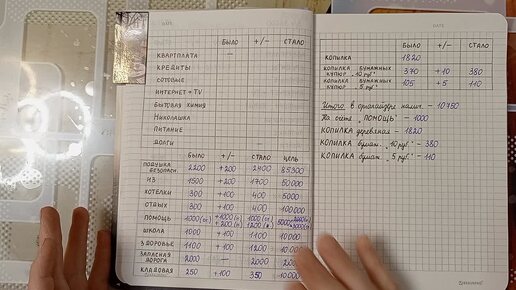 DATE
БЫЛО +/- СТАЛО
КВАРТПЛАТА —
КРЕДИТЫ
СОТОВЫЕ
ИНТЕРНЕТ + TV
БЫТОВАЯ ХИМИЯ
НИКОЛАШКА
ПИТАНИЕ
ДОЛГИ
БЫЛО +/- СТАЛО ЦЕЛЬ
ПОДУШКА БЕЗОПАСН. 2200 +200 2400 85300
ИЗ 1500 +200 1700 50000
ХОТЕЛКИ 300 +100 400 5000
ОТДЫХ 300 +100 400 100000
ПОМОЩЬ 1000 +1000 1000 5000
+200 1200
ШКОЛА 1000 +100 1100 10000
ЗДОРОВЬЕ 1100 +100 1200 10000
ЗАПАСНАЯ ДОРОГА 2000 — 2000
КЛАДОВАЯ 250 +100 350 10.000
DATE
БЫЛО +/- СТАЛО
КОПИЛКА 1820
КОПИЛКА БУМАЖНЫХ КУПЮР „10 руб." 370 +10 380
КОПИЛКА БУМАЖНЫХ КУПЮР „5 руб." 105 +5 110
Итого в органайзере налич. - 10.750
На счёте „ПОМОЩЬ" - 1000
КОПИЛКА деревянная - 1820
КОПИЛКА бумаж. „10 руб." - 380
КОПИЛКА бумаж. „5 руб." - 110